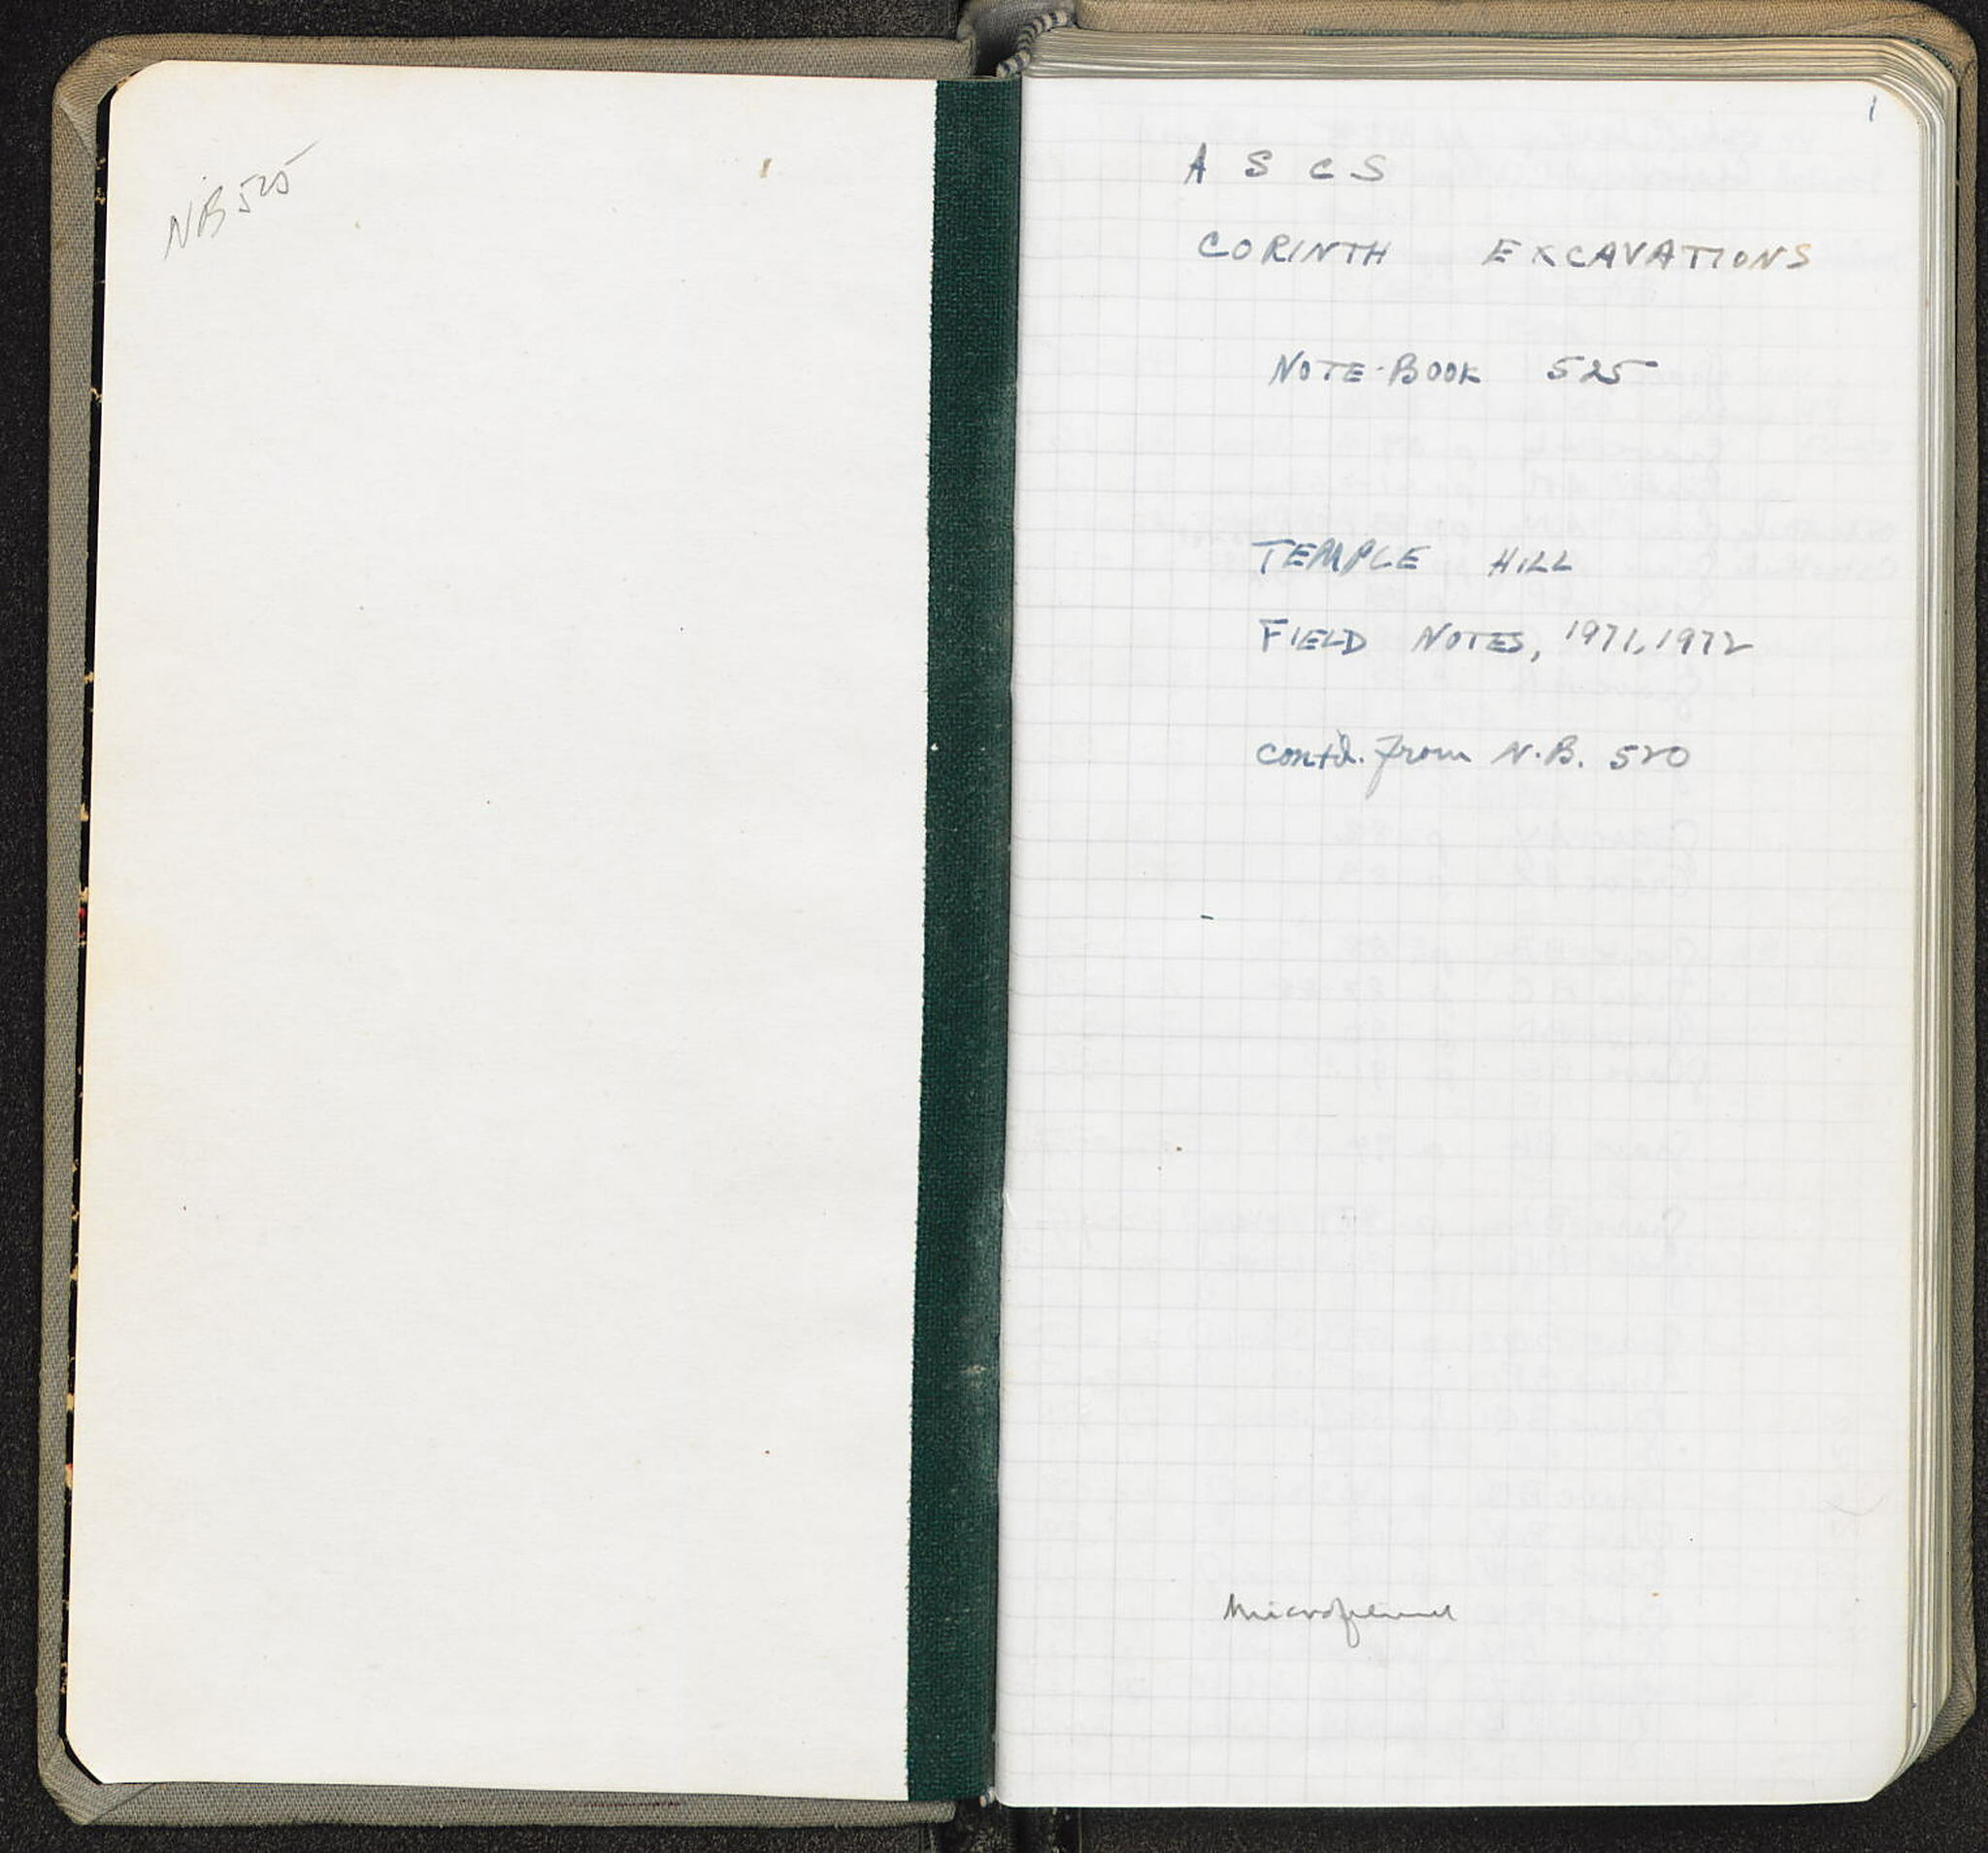 NB 525
1
A S C S
CORINTH EXCAVATIONS
NOTE-BOOK 525
TEMPLE HILL
FIELD NOTES, 1971, 1972
contd. from N.B. 520
Microfilmed